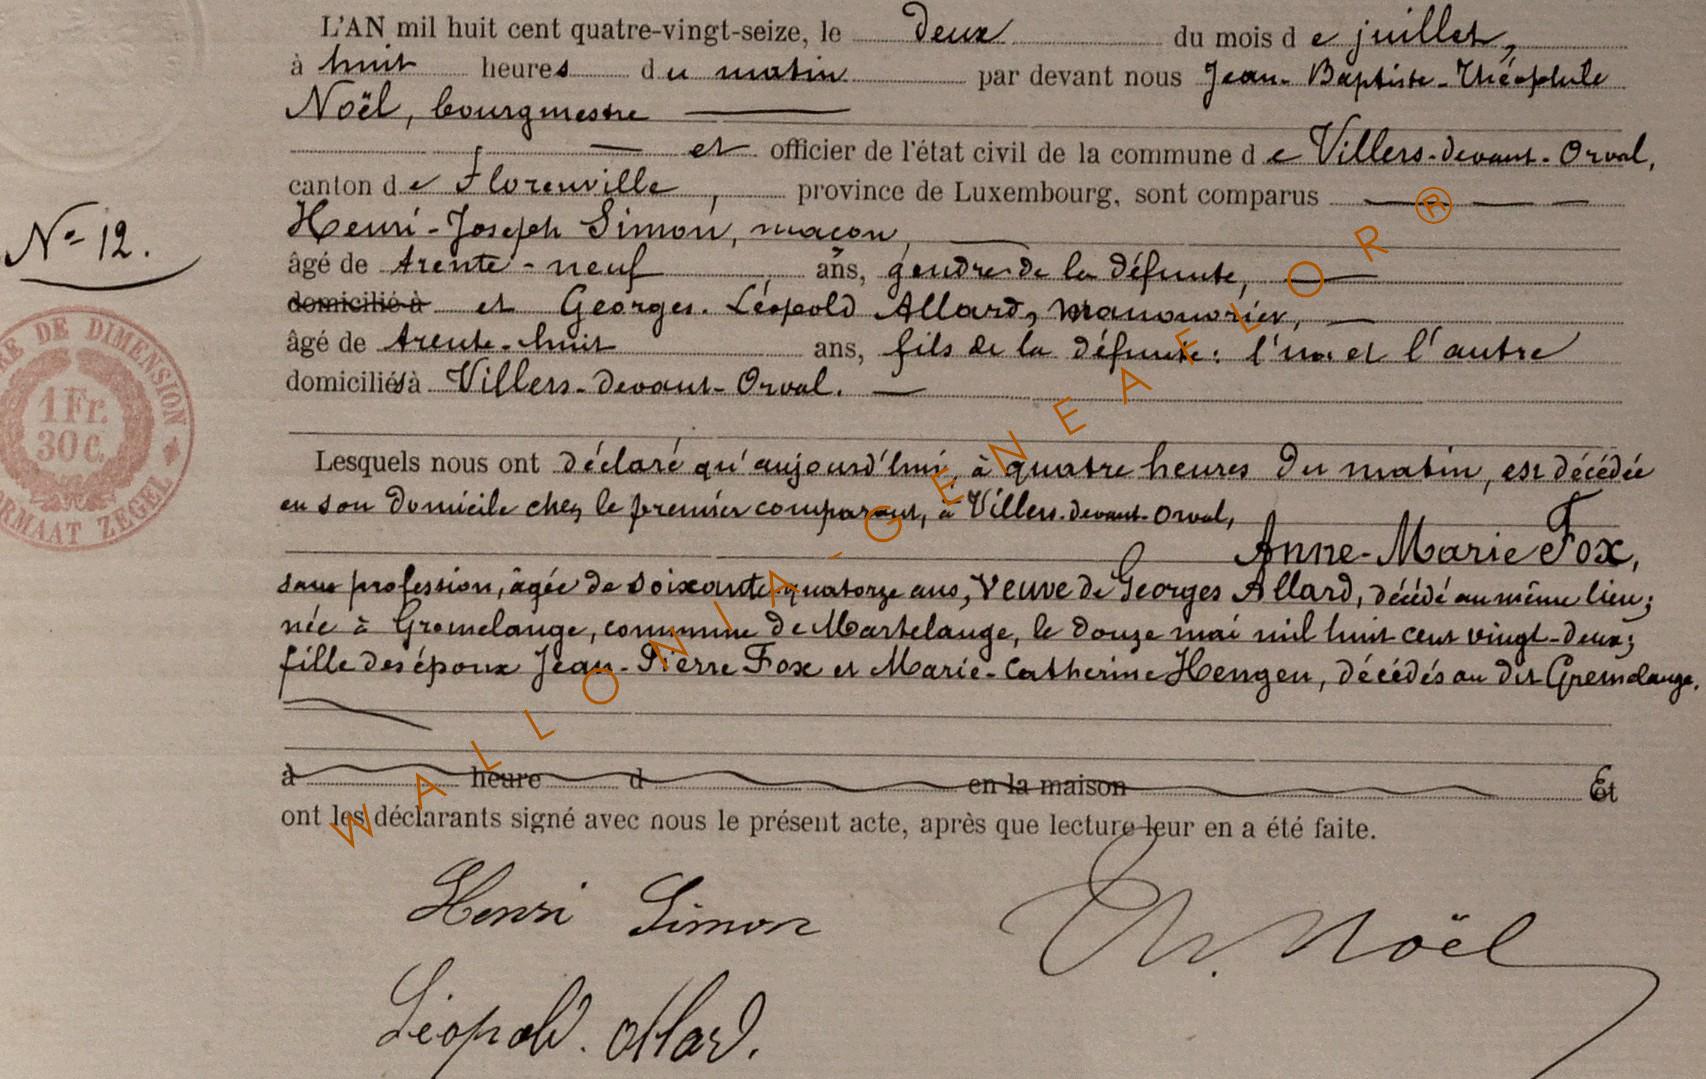 L'AN mil huit cent quatre-vingt-seize, le deux du mois de juillet,
à huit heures du matin par devant nous Jean-Baptiste-Théophile
Noël, bourgmestre
et officier de l'état civil de la commune de Villers-devant-Orval,
canton de Florenville, province de Luxembourg, sont comparus
Henri-Joseph Simon, maçon,
N° 12.
âgé de trente-neuf ans, gendre de la défunte,
domicilié à et Georges-Léopold Allard, manouvrier,
âgé de trente-huit ans, fils de la défunte: l'un et l'autre
domiciliés à Villers-devant-Orval.
RE DE DIMENSION
1 Fr.
30 C.
ORMAAT ZEGEL
Lesquels nous ont déclaré qu'aujourd'hui, à quatre heures du matin, est décédée
en son domicile chez le premier comparant, à Villers-devant-Orval,
Anne-Marie Fox,
sans profession, âgée de soixante-quatorze ans, veuve de Georges Allard, décédé au même lieu;
née à Gremelange, commune de Martelange, le douze mai mil huit cent vingt-deux;
fille des époux Jean-Pierre Fox et Marie-Catherine Hengen, décédés au dit Gremelange.
à heure d en la maison Et
ont les déclarants signé avec nous le présent acte, après que lecture leur en a été faite.
Henri Simon
Th. Noël
Léopold Allard.
WALLONIA-GENEAFLOR®